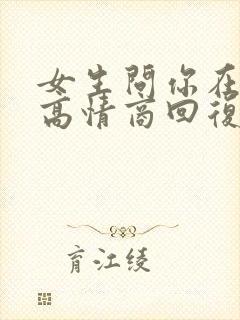 女生問你在
高情商回復
育江綾